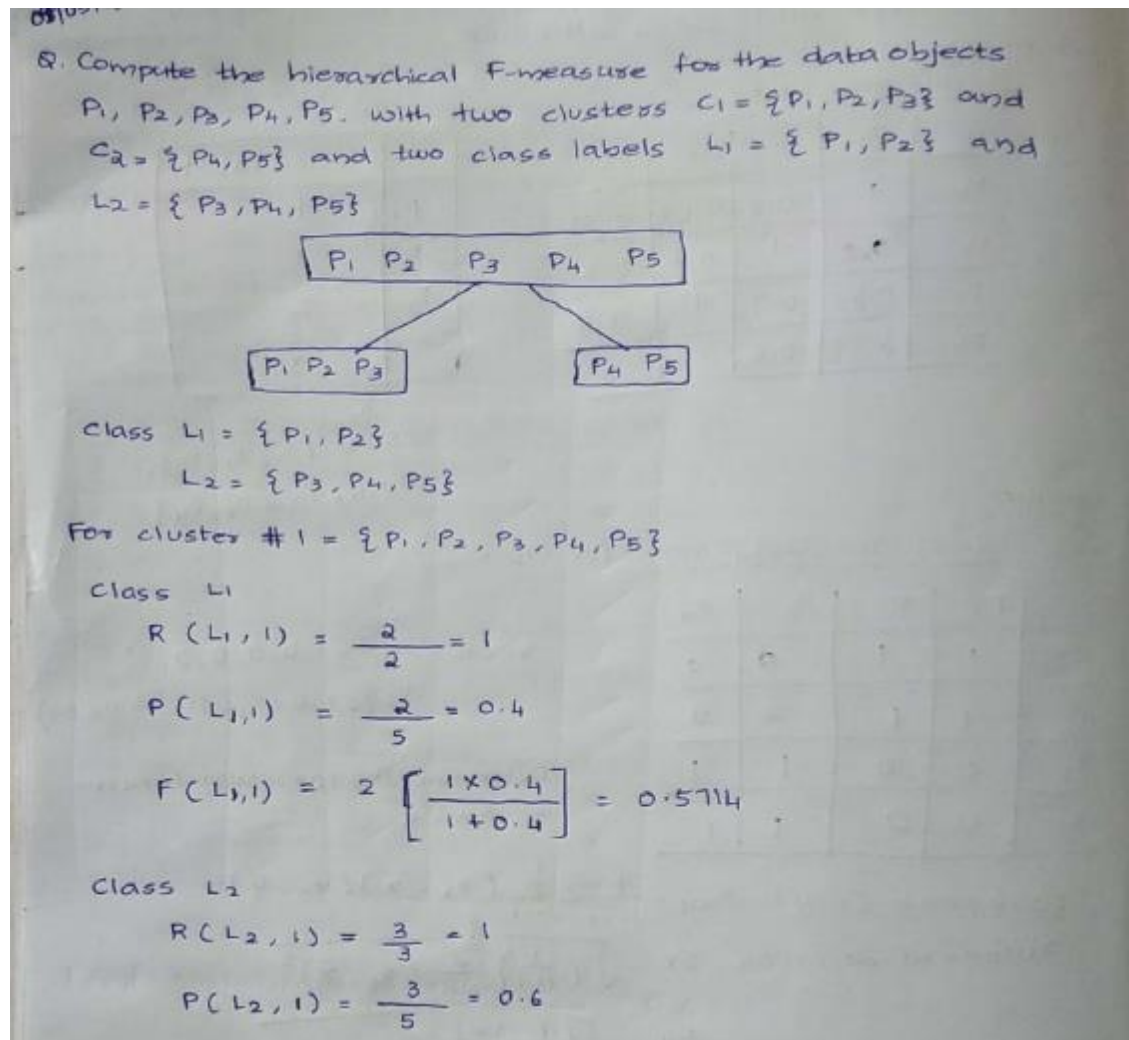 Q. Compute the hierarchical F-measure for the data objects
P1, P2, P3, P4, P5. with two clusters C1 = {P1, P2, P3} and
C2 = {P4, P5} and two class labels L1 = {P1, P2} and
L2 = {P3, P4, P5}
P1 P2 P3 P4 P5
P1 P2 P3 P4 P5
Class L1 = {P1, P2}
L2 = {P3, P4, P5}
For cluster # 1 = {P1, P2, P3, P4, P5}
Class L1
R (L1, 1) = 2/2 = 1
P (L1, 1) = 2/5 = 0.4
F (L1, 1) = 2 [1×0.4 / 1+0.4] = 0.5714
Class L2
R (L2, 1) = 3/3 = 1
P (L2, 1) = 3/5 = 0.6